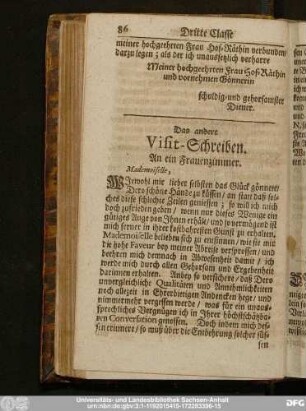 86 Dritte Classe
meiner hochgeehrten Frau Hof-Räthin verbunden
darzu legen; als der ich unaussetzlich verharre
Meiner hochgeehrten Frau Hof-Räthin
und vornehmen Gönnerin
schuldig- und gehorsamster
Diener.
Das andere
Visit-Schreiben.
An ein Frauenzimmer.
Mademoiselle,
Wiewohl mir lieber selbsten das Glück gönnete/
Dero schöne Hände zu küssen/ an statt daß sel-
ches diese schlechte Zeilen geniessen; so will ich mich
doch zufrieden geben/ wenn nur dieses Wenige ein
gütiges Auge von Ihnen erhält/ und ist
mich ferner in ihrer kostbahresten Gunst zu erhalten.
Mademoiselle belieben sich zu entsinnen/ wie sie mir
die hohe Faveur bey meiner Abreise versprochen/ und
beehren mich demnach in Abwesenheit damit/ ich
werde mich durch allen Gehorsam und Ergebenheit
darinnen erhalten. Anbey so versichere/ daß Dero
unvergleichliche Qualitäten und Annehmlichkeiten
noch allezeit in Ehrerbietigen Andencken hege/ und
nimmermehr vergessen werde/ was für ein unaus-
sprechliches Vergnügen ich in Ihrer höchstschätzba-
ren Conversation genossen. Doch indem mich des-
sen erinnere/ so muß über die Entbehrung solcher süs-
sen
Universitäts- und Landesbibliothek Sachsen-Anhalt
urn:nbn:de:gbv:3:1-1192015415-172283396-15
DFG